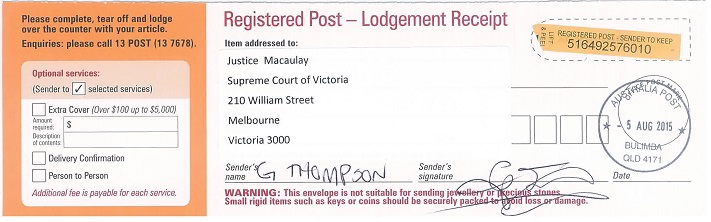 Please complete, tear off and lodge
over the counter with your article.
Enquiries: please call 13 POST (13 7678).
Optional services:
(Sender to ✓ selected services)
Extra Cover (Over $100 up to $5,000)
Amount
required:
$
Description
of contents:
Delivery Confirmation
Person to Person
Additional fee is payable for each service.
Registered Post – Lodgement Receipt
Item addressed to:
Justice Macaulay
Supreme Court of Victoria
210 William Street
Melbourne
Victoria 3000
LIFT
& PEEL
REGISTERED POST - SENDER TO KEEP
516492576010
AUSTRALIA POST
- 5 AUG 2015
BULIMBA
QLD 4171
Sender's
name
G THOMPSON
Sender's
signature
Date
WARNING: This envelope is not suitable for sending jewellery or precious stones.
Small rigid items such as keys or coins should be securely packed to avoid loss or damage.